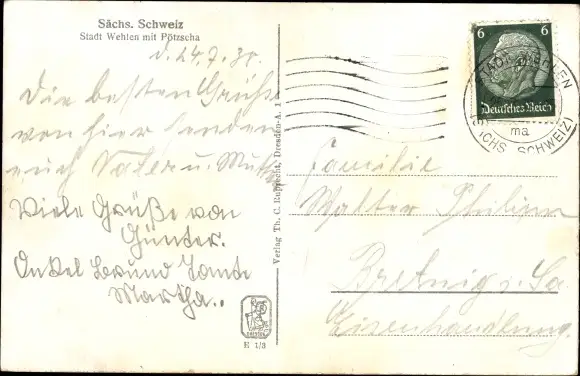 Sächs. Schweiz
Stadt Wehlen mit Pötzscha
d. 24.7.38.
Die besten Grüße
von hier senden
euch Vater u. Mutt
Viele Grüße von
Günter.
Onkel Bruno Tante
Martha..
Verlag Th. C. Ruprecht, Dresden-A. 1
E 1/3
6 6
Deutsches Reich
STADT WEHLEN
ma
(SÄCHS. SCHWEIZ)
Familie
Walter
Bretnig i. Sa.
Eisenhandlung.